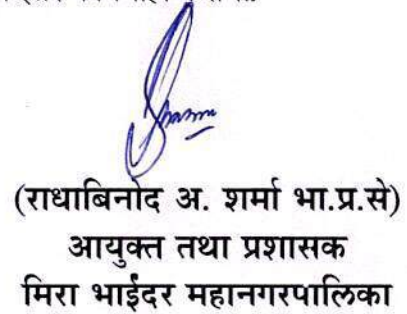 (राधाबिनोद अ. शर्मा भा.प्र.से)
आयुक्त तथा प्रशासक
मिरा भाईंदर महानगरपालिका